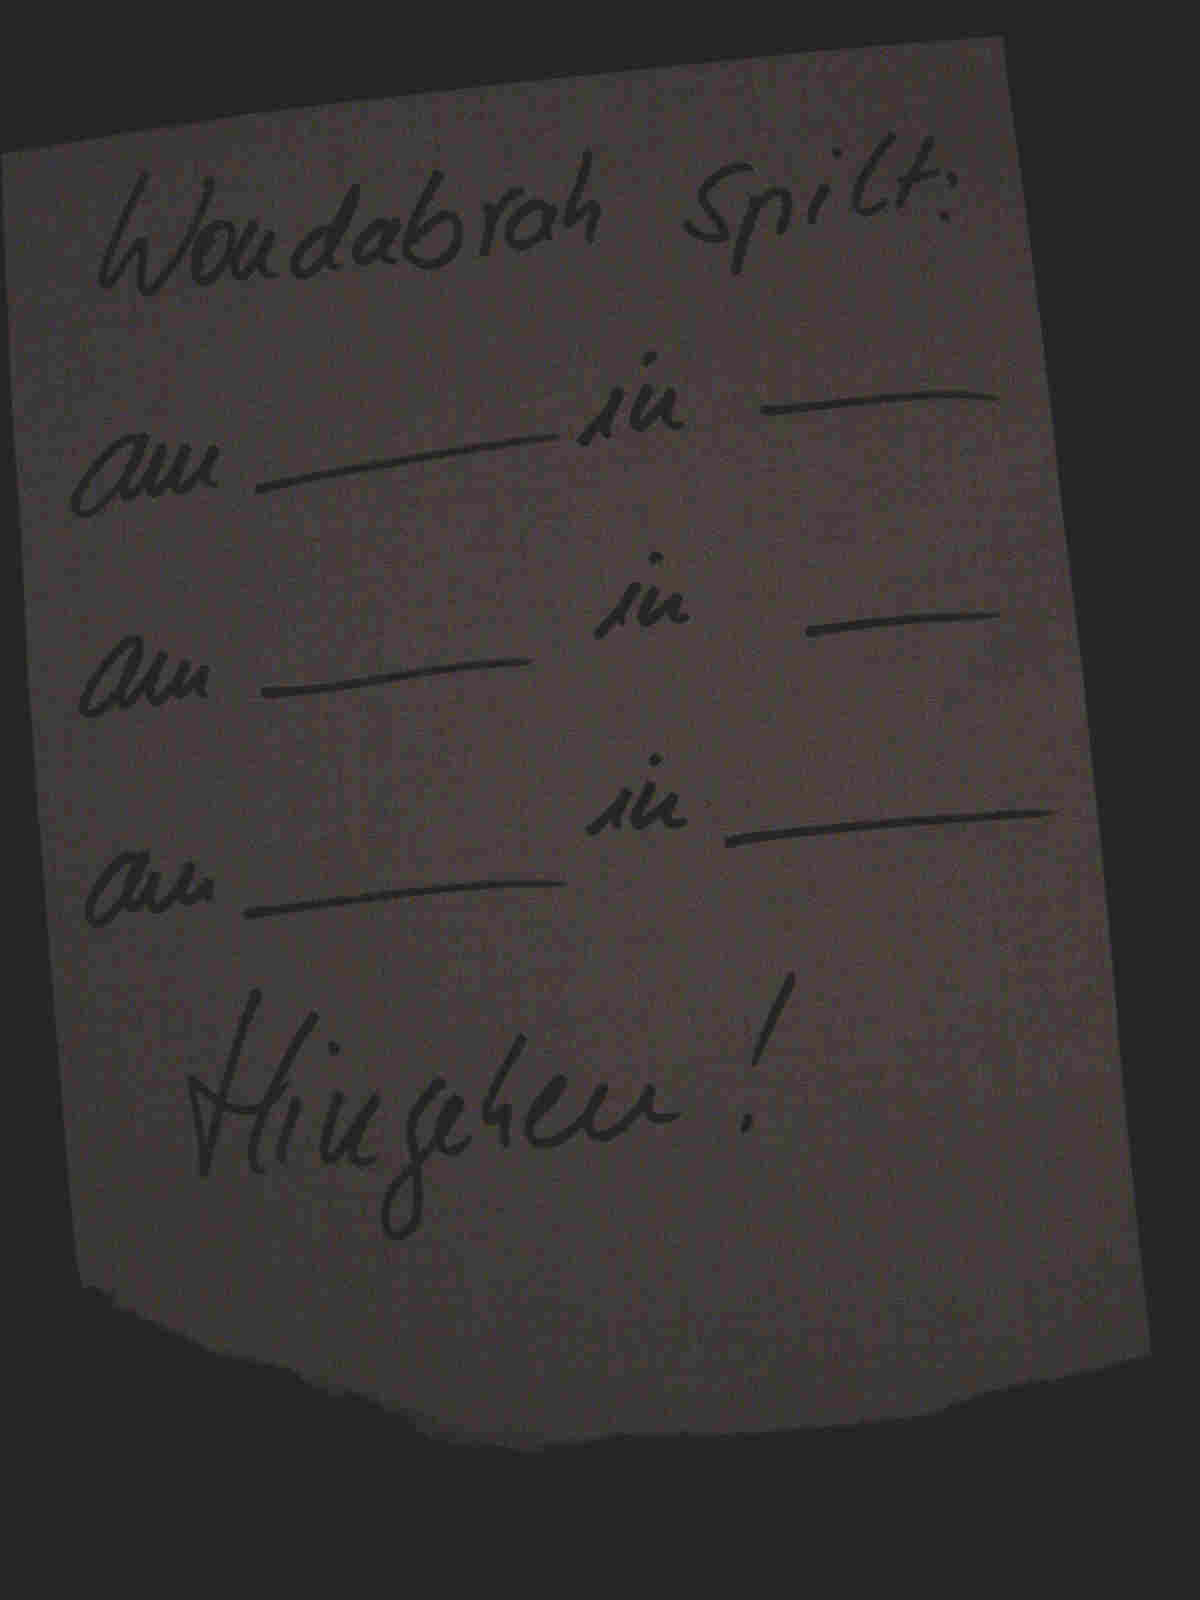 Woudabrah spilt:
am ______ in ______
am ______ in ______
am ______ in ______
Hingehen!